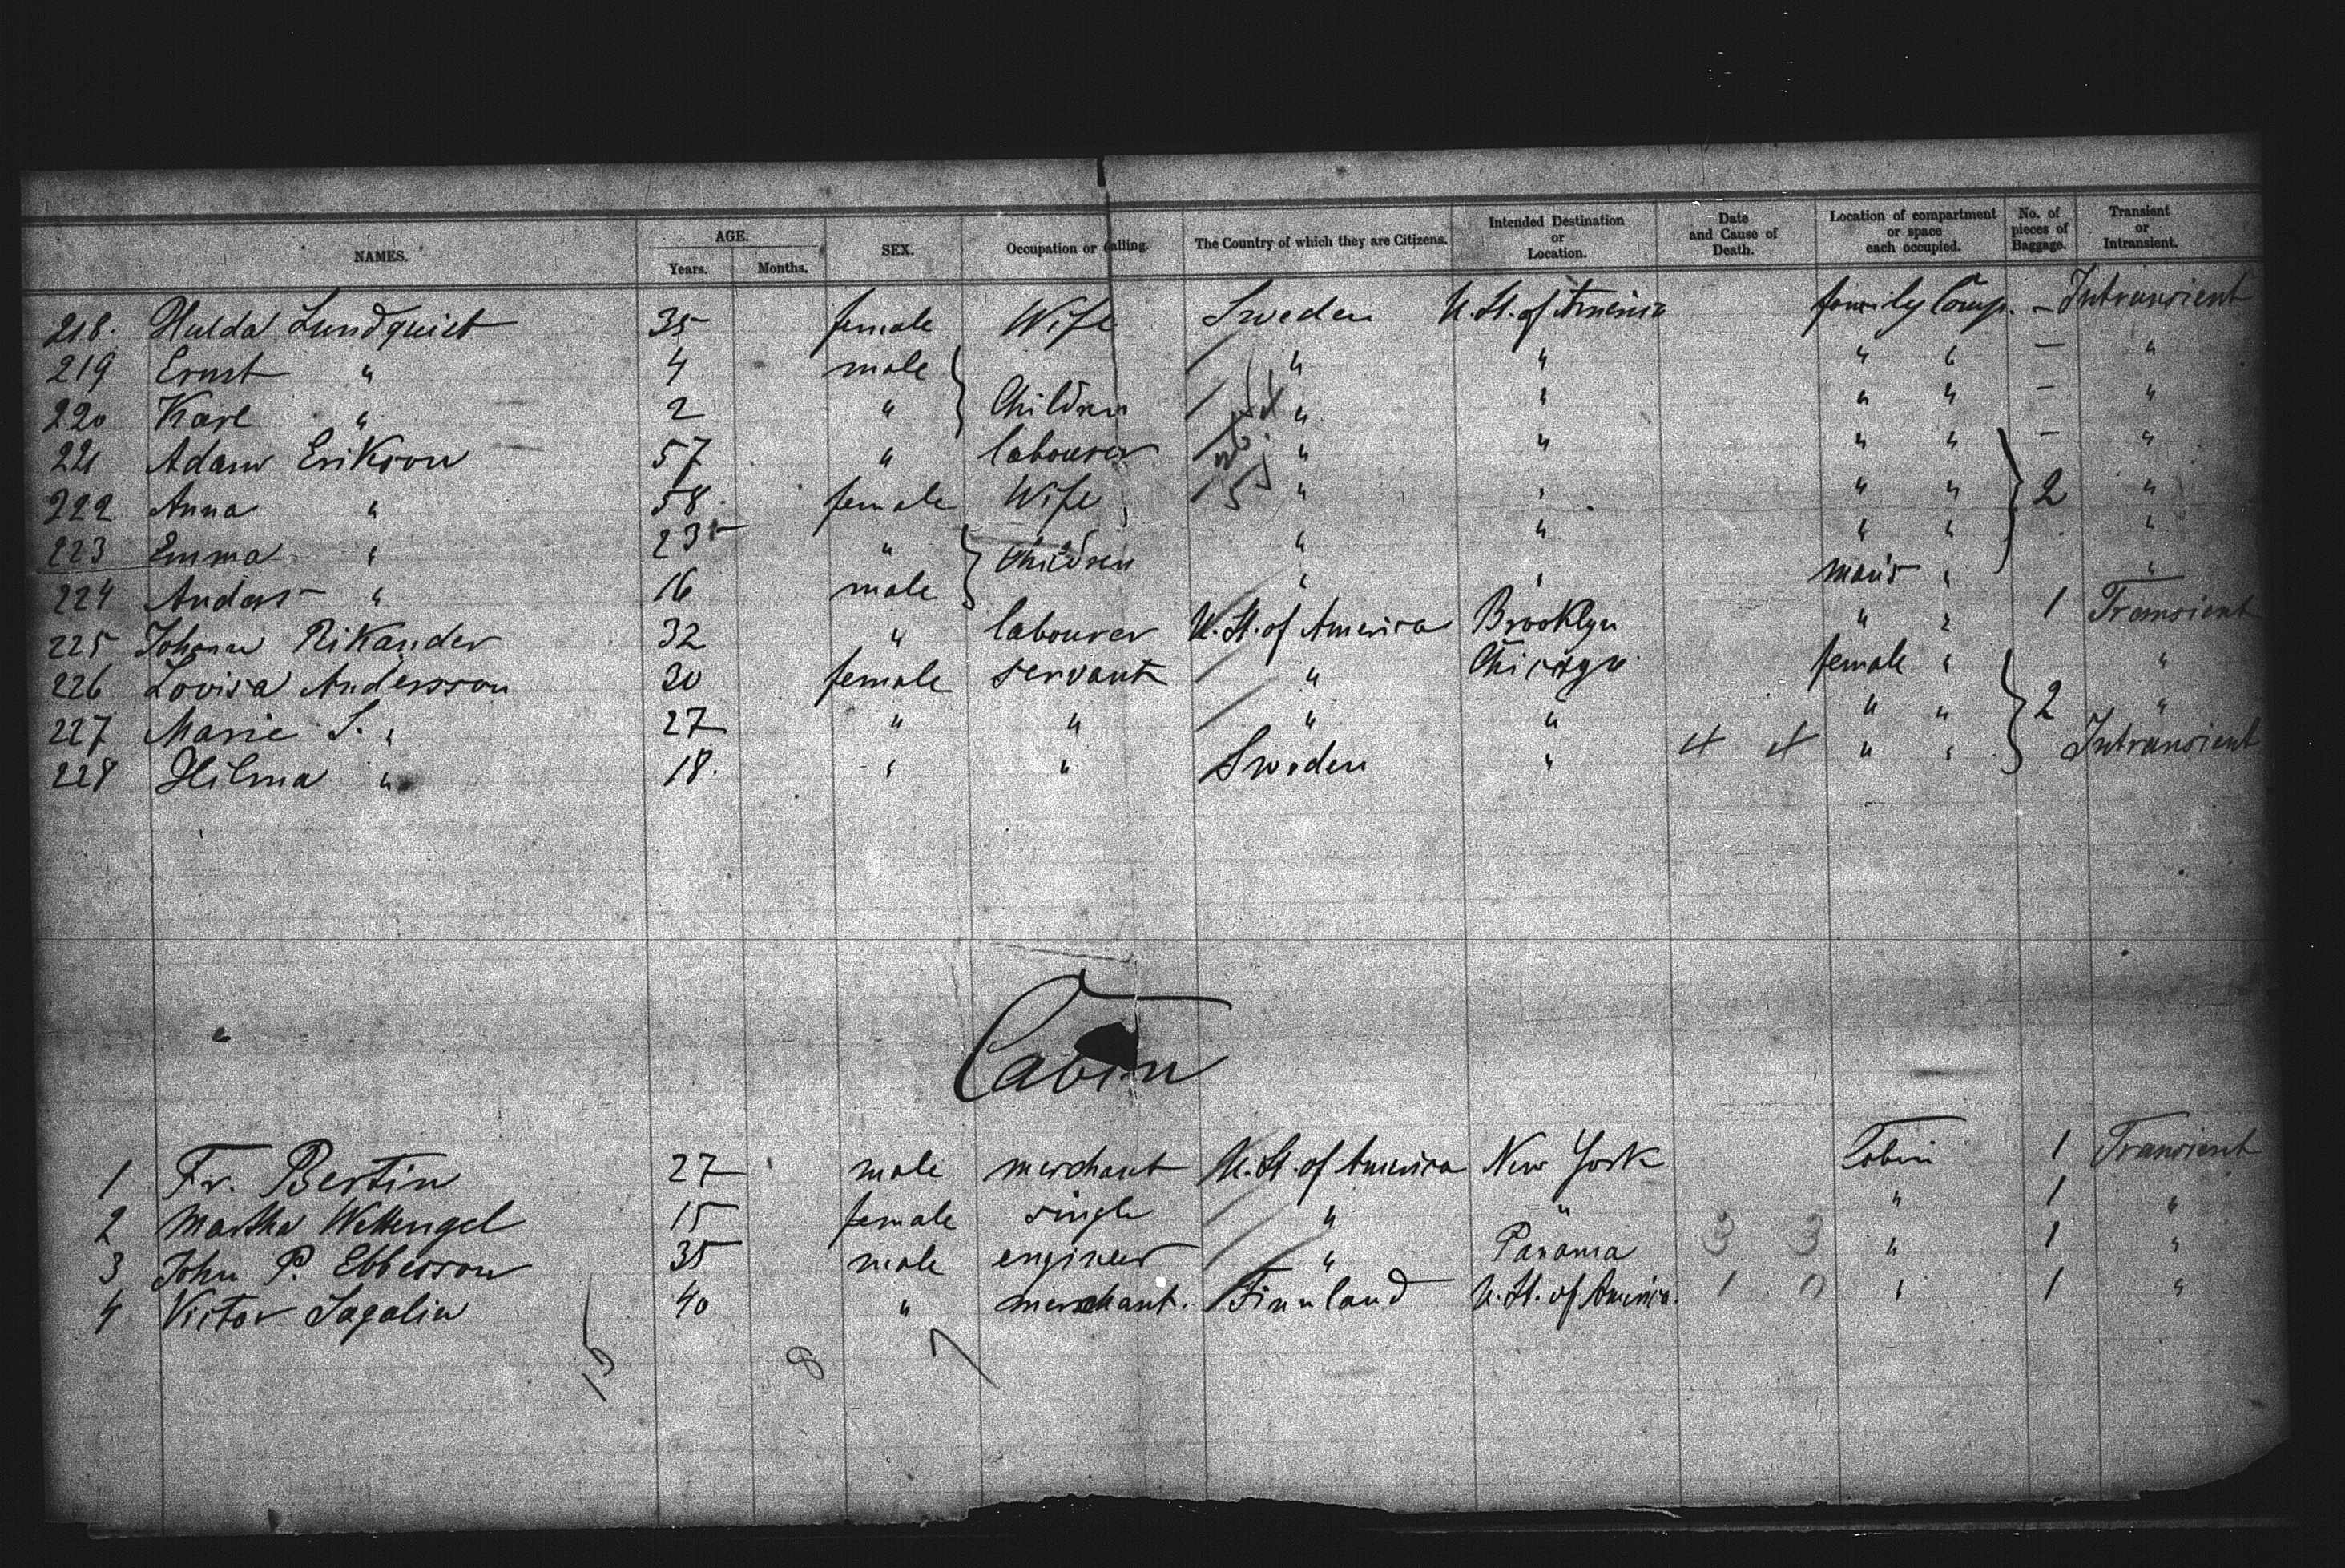 NAMES. AGE. Years. Months. SEX. Occupation or calling. The Country of which they are Citizens. Intended Destination or Location. Date and Cause of Death. Location of compartment or space each occupied. No. of pieces of Baggage. Transient or Intransient.
218. Hulda Lundquist 35 female Wife Sweden U. St. of America family Comp. — Intransient
219 Ernst " 4 male " " " " — "
220 Karl " 2 " Children " " " " — "
221 Adam Erikson 57 " labourer " " " " — "
222 Anna " 58. female Wife " " " " 2 "
223 Emma " 23 " Children " " " " "
224 Anders " 16 male " " man's " "
225 Johann Rikander 32 " labourer U. St. of America Brooklyn " " 1 Transient
226 Lovisa Andersson 30 female servant " Chicago female " "
227 Marie S. " 27 " " " " " " 2 "
228 Hilma " 18. " " Sweden " " " Intransient
Cabin
1 Fr. Bertin 27 male merchant U. St. of America New York Cabin 1 Transient
2 Martha Wettengel 15 female single " " " 1 "
3 John P. Ebbesson 35 male engineer " Panama 3 3 " 1 "
4 Victor Sagalin 40 " merchant. Finnland U. St. of America. 1 0 " 1 "
8 7